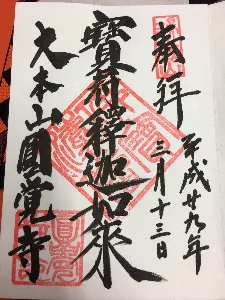 奉拜
平成廿九年
三月十三日
寶冠釋迦如來
大本山圓覺寺